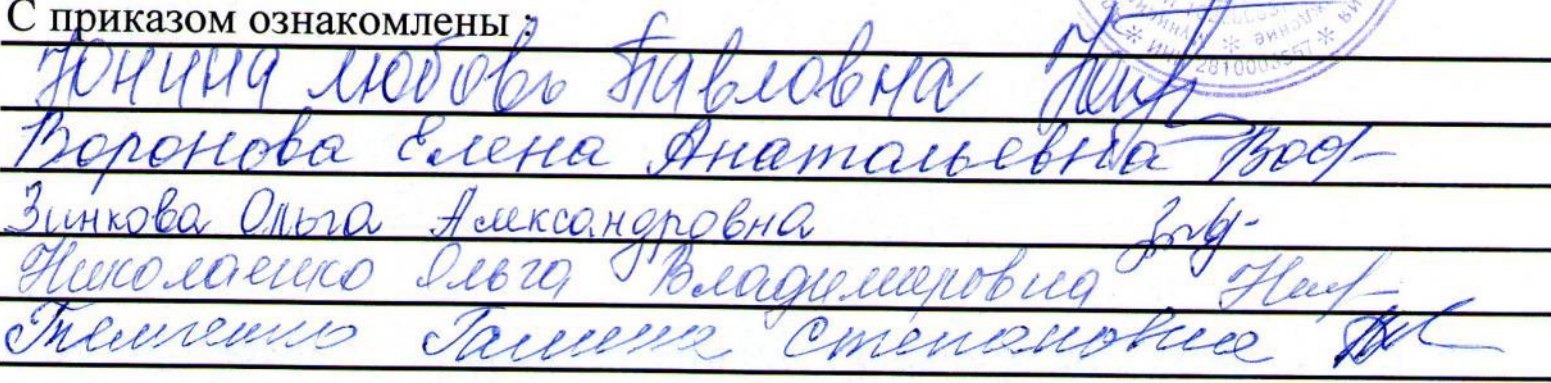 С приказом ознакомлены :
Юнина Любовь Павловна
Воронова Елена Анатольевна
Зинкова Ольга Александровна
Николаенко Ольга Владимировна
Галина Степановна